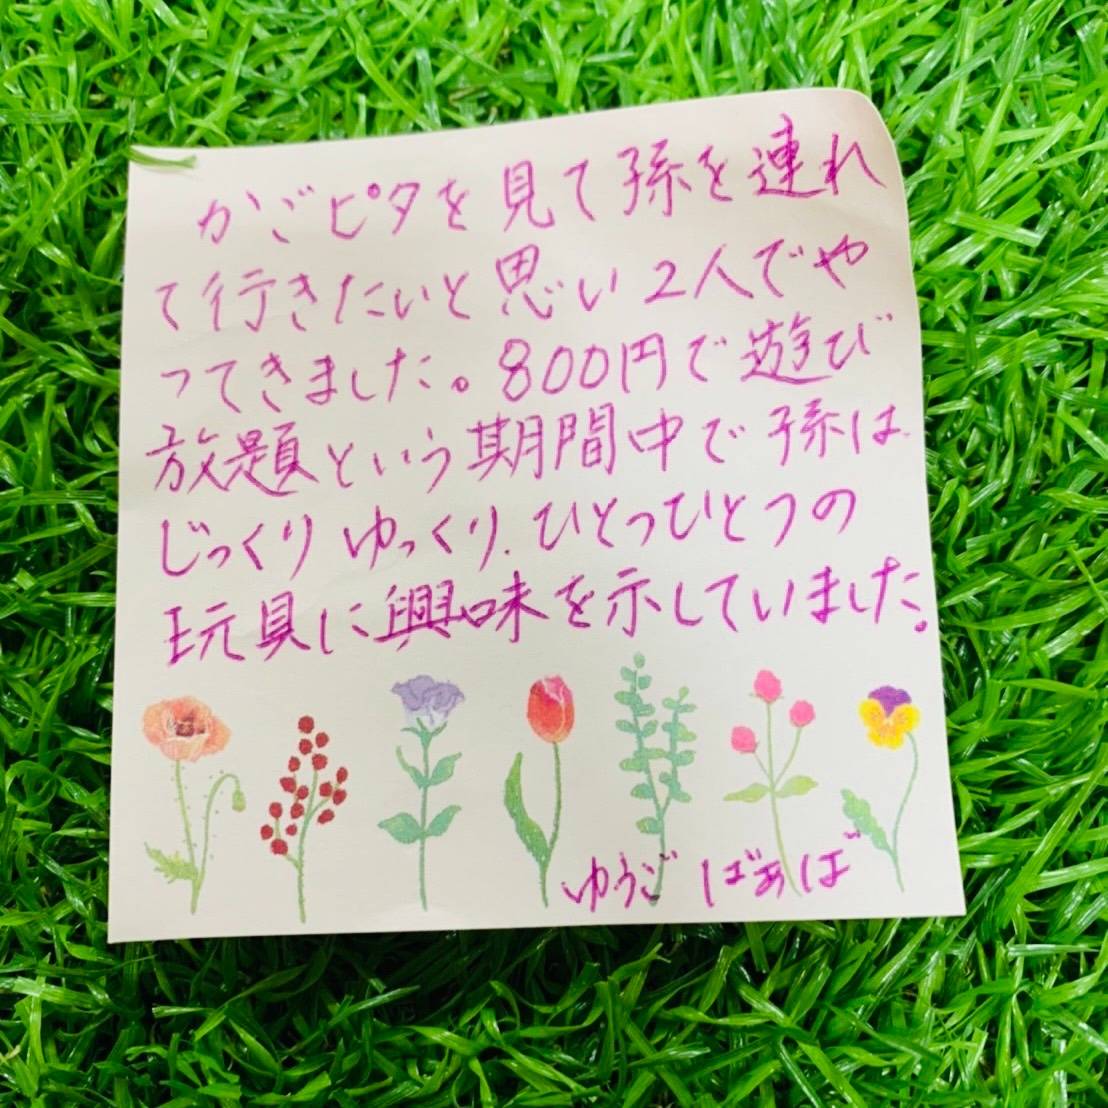 かごピタを見て孫を連れ
て行きたいと思い2人でや
ってきました。800円で遊び
放題という期間中で孫は
じっくりゆっくり、ひとつひとつの
玩具に興味を示していました。
ゆうご ばぁば